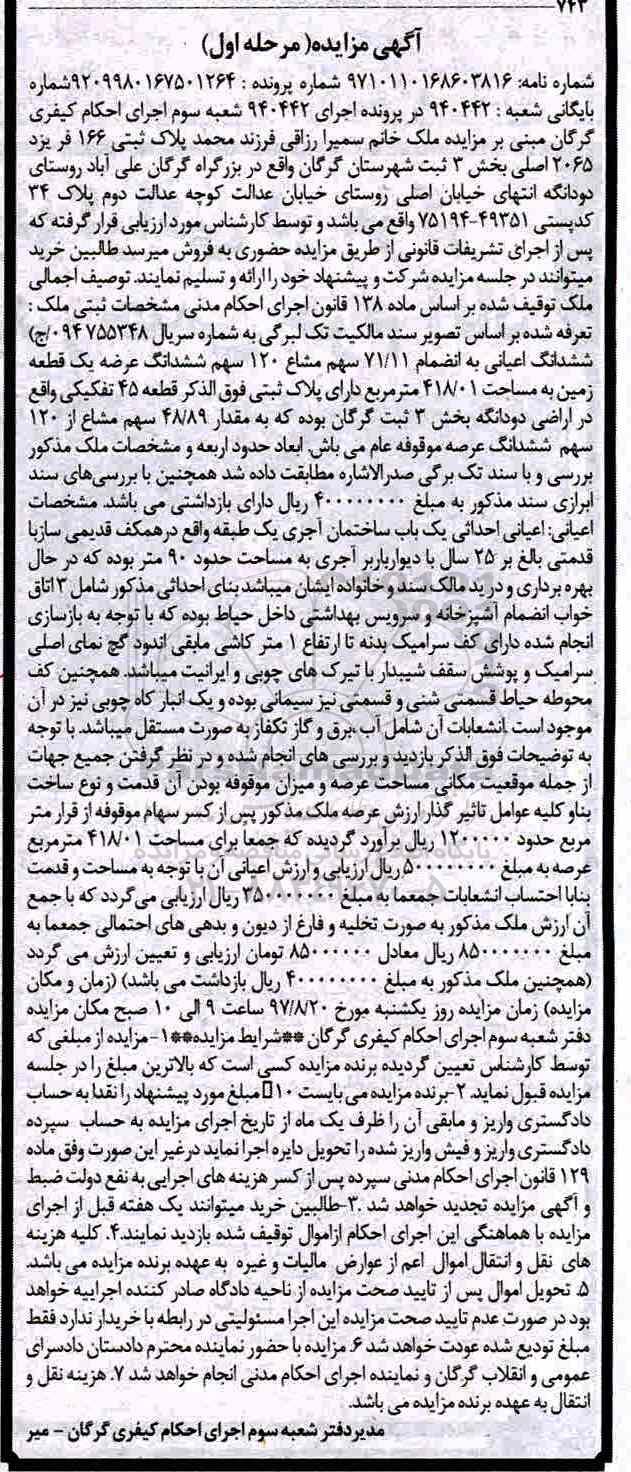 ۷۴۳
آگهی مزایده( مرحله اول)
شماره نامه: ۹۷۱۰۱۱۰۱۶۸۶۰۳۸۱۶ شماره پرونده : ۹۲۰۹۹۸۰۱۶۷۵۰۱۲۶۴شماره
بایگانی شعبه : ۹۴۰۴۴۲ در پرونده اجرای ۹۴۰۴۴۲ شعبه سوم اجرای احکام کیفری
گرگان مبنی بر مزایده ملک خانم سمیرا رزاقی فرزند محمد پلاک ثبتی ۱۶۶ فر یزد
۲۰۶۵ اصلی بخش ۳ ثبت شهرستان گرگان واقع در بزرگراه گرگان علی آباد روستای
دودانگه انتهای خیابان اصلی روستای خیابان عدالت کوچه عدالت دوم پلاک ۳۴
کدپستی ۴۹۳۵۱-۷۵۱۹۴ واقع می باشد و توسط کارشناس مورد ارزیابی قرار گرفته که
پس از اجرای تشریفات قانونی از طریق مزایده حضوری به فروش میرسد طالبین خرید
میتوانند در جلسه مزایده شرکت و پیشنهاد خود را ارائه و تسلیم نمایند. توصیف اجمالی
ملک توقیف شده بر اساس ماده ۱۳۸ قانون اجرای احکام مدنی مشخصات ثبتی ملک :
تعرفه شده بر اساس تصویر سند مالکیت تک لبرگی به شماره سریال ۰۹۴۷۵۵۳۴۸/ج)
ششدانگ اعیانی به انضمام ۷۱/۱۱ سهم مشاع ۱۲۰ سهم ششدانگ عرضه یک قطعه
زمین به مساحت ۴۱۸/۰۱ مترمربع دارای پلاک ثبتی فوق الذکر قطعه ۴۵ تفکیکی واقع
در اراضی دودانگه بخش ۳ ثبت گرگان بوده که به مقدار ۴۸/۸۹ سهم مشاع از ۱۲۰
سهم ششدانگ عرصه موقوفه عام می باش. ابعاد حدود اربعه و مشخصات ملک مذکور
بررسی و با سند تک برگی صدرالاشاره مطابقت داده شد همچنین با بررسی‌های سند
ابرازی سند مذکور به مبلغ ۴۰۰۰۰۰۰۰۰ ریال دارای بازداشتی می باشد. مشخصات
اعیانی: اعیانی احداثی یک باب ساختمان آجری یک طبقه واقع درهمکف قدیمی سازبا
قدمتی بالغ بر ۲۵ سال با دیوارباربر آجری به مساحت حدود ۹۰ متر بوده که در حال
بهره برداری و در ید مالک سند و خانواده ایشان میباشد بنای احداثی مذکور شامل ۳ اتاق
خواب انضمام آشپزخانه و سرویس بهداشتی داخل حیاط بوده که با توجه به بازسازی
انجام شده دارای کف سرامیک بدنه تا ارتفاع ۱ متر کاشی مابقی اندود گچ نمای اصلی
سرامیک و پوشش سقف شیبدار با تیرک های چوبی و ایرانیت میباشد. همچنین کف
محوطه حیاط قسمتی شنی و قسمتی نیز سیمانی بوده و یک انبار کاه چوبی نیز در آن
موجود است .انشعابات آن شامل آب ،برق و گاز تکفاز به صورت مستقل میباشد. با توجه
به توضیحات فوق الذکر بازدید و بررسی های انجام شده و در نظر گرفتن جمیع جهات
از جمله موقعیت مکانی مساحت عرصه و میزان موقوفه بودن آن قدمت و نوع ساخت
بناو کلیه عوامل تاثیر گذار ارزش عرصه ملک مذکور پس از کسر سهام موقوفه از قرار متر
مربع حدود ۱۲۰۰۰۰۰ ریال برآورد گردیده که جمعا برای مساحت ۴۱۸/۰۱ مترمربع
عرصه به مبلغ ۵۰۰۰۰۰۰۰۰ ریال ارزیابی و ارزش اعیانی آن با توجه به مساحت و قدمت
بنابا احتساب انشعابات جمعما به مبلغ ۳۵۰۰۰۰۰۰۰ ریال ارزیابی می‌گردد که با جمع
آن ارزش ملک مذکور به صورت تخلیه و فارغ از دیون و بدهی های احتمالی جمعما به
مبلغ ۸۵۰۰۰۰۰۰۰ ریال معادل ۸۵۰۰۰۰۰۰ تومان ارزیابی و تعیین ارزش می گردد
(همچنین ملک مذکور به مبلغ ۴۰۰۰۰۰۰۰۰ ریال بازداشت می باشد) (زمان و مکان
مزایده) زمان مزایده روز یکشنبه مورخ ۹۷/۸/۲۰ ساعت ۹ الی ۱۰ صبح مکان مزایده
دفتر شعبه سوم اجرای احکام کیفری گرگان **شرایط مزایده**۱-مزایده از مبلغی که
توسط کارشناس تعیین گردیده برنده مزایده کسی است که بالاترین مبلغ را در جلسه
مزایده قبول نماید. ۲-برنده مزایده می بایست ۱۰ مبلغ مورد پیشنهاد را نقدا به حساب
دادگستری واریز و مابقی آن را ظرف یک ماه از تاریخ اجرای مزایده به حساب سپرده
دادگستری واریز و فیش واریز شده را تحویل دایره اجرا نماید درغیر این صورت وفق ماده
۱۲۹ قانون اجرای احکام مدنی سپرده پس از کسر هزینه های اجرایی به نفع دولت ضبط
و آگهی مزایده تجدید خواهد شد .۳-طالبین خرید میتوانند یک هفته قبل از اجرای
مزایده با هماهنگی این اجرای احکام ازاموال توقیف شده بازدید نمایند.۴. کلیه هزینه
های نقل و انتقال اموال اعم از عوارض مالیات و غیره به عهده برنده مزایده می باشد.
۵. تحویل اموال پس از تایید صحت مزایده از ناحیه دادگاه صادر کننده اجراییه خواهد
بود در صورت عدم تایید صحت مزایده این اجرا مسئولیتی در رابطه با خریدار ندارد فقط
مبلغ تودیع شده عودت خواهد شد ۶. مزایده با حضور نماینده محترم دادستان دادسرای
عمومی و انقلاب گرگان و نماینده اجرای احکام مدنی انجام خواهد شد ۷. هزینه نقل و
انتقال به عهده برنده مزایده می باشد.
مدیردفتر شعبه سوم اجرای احکام کیفری گرگان - میر